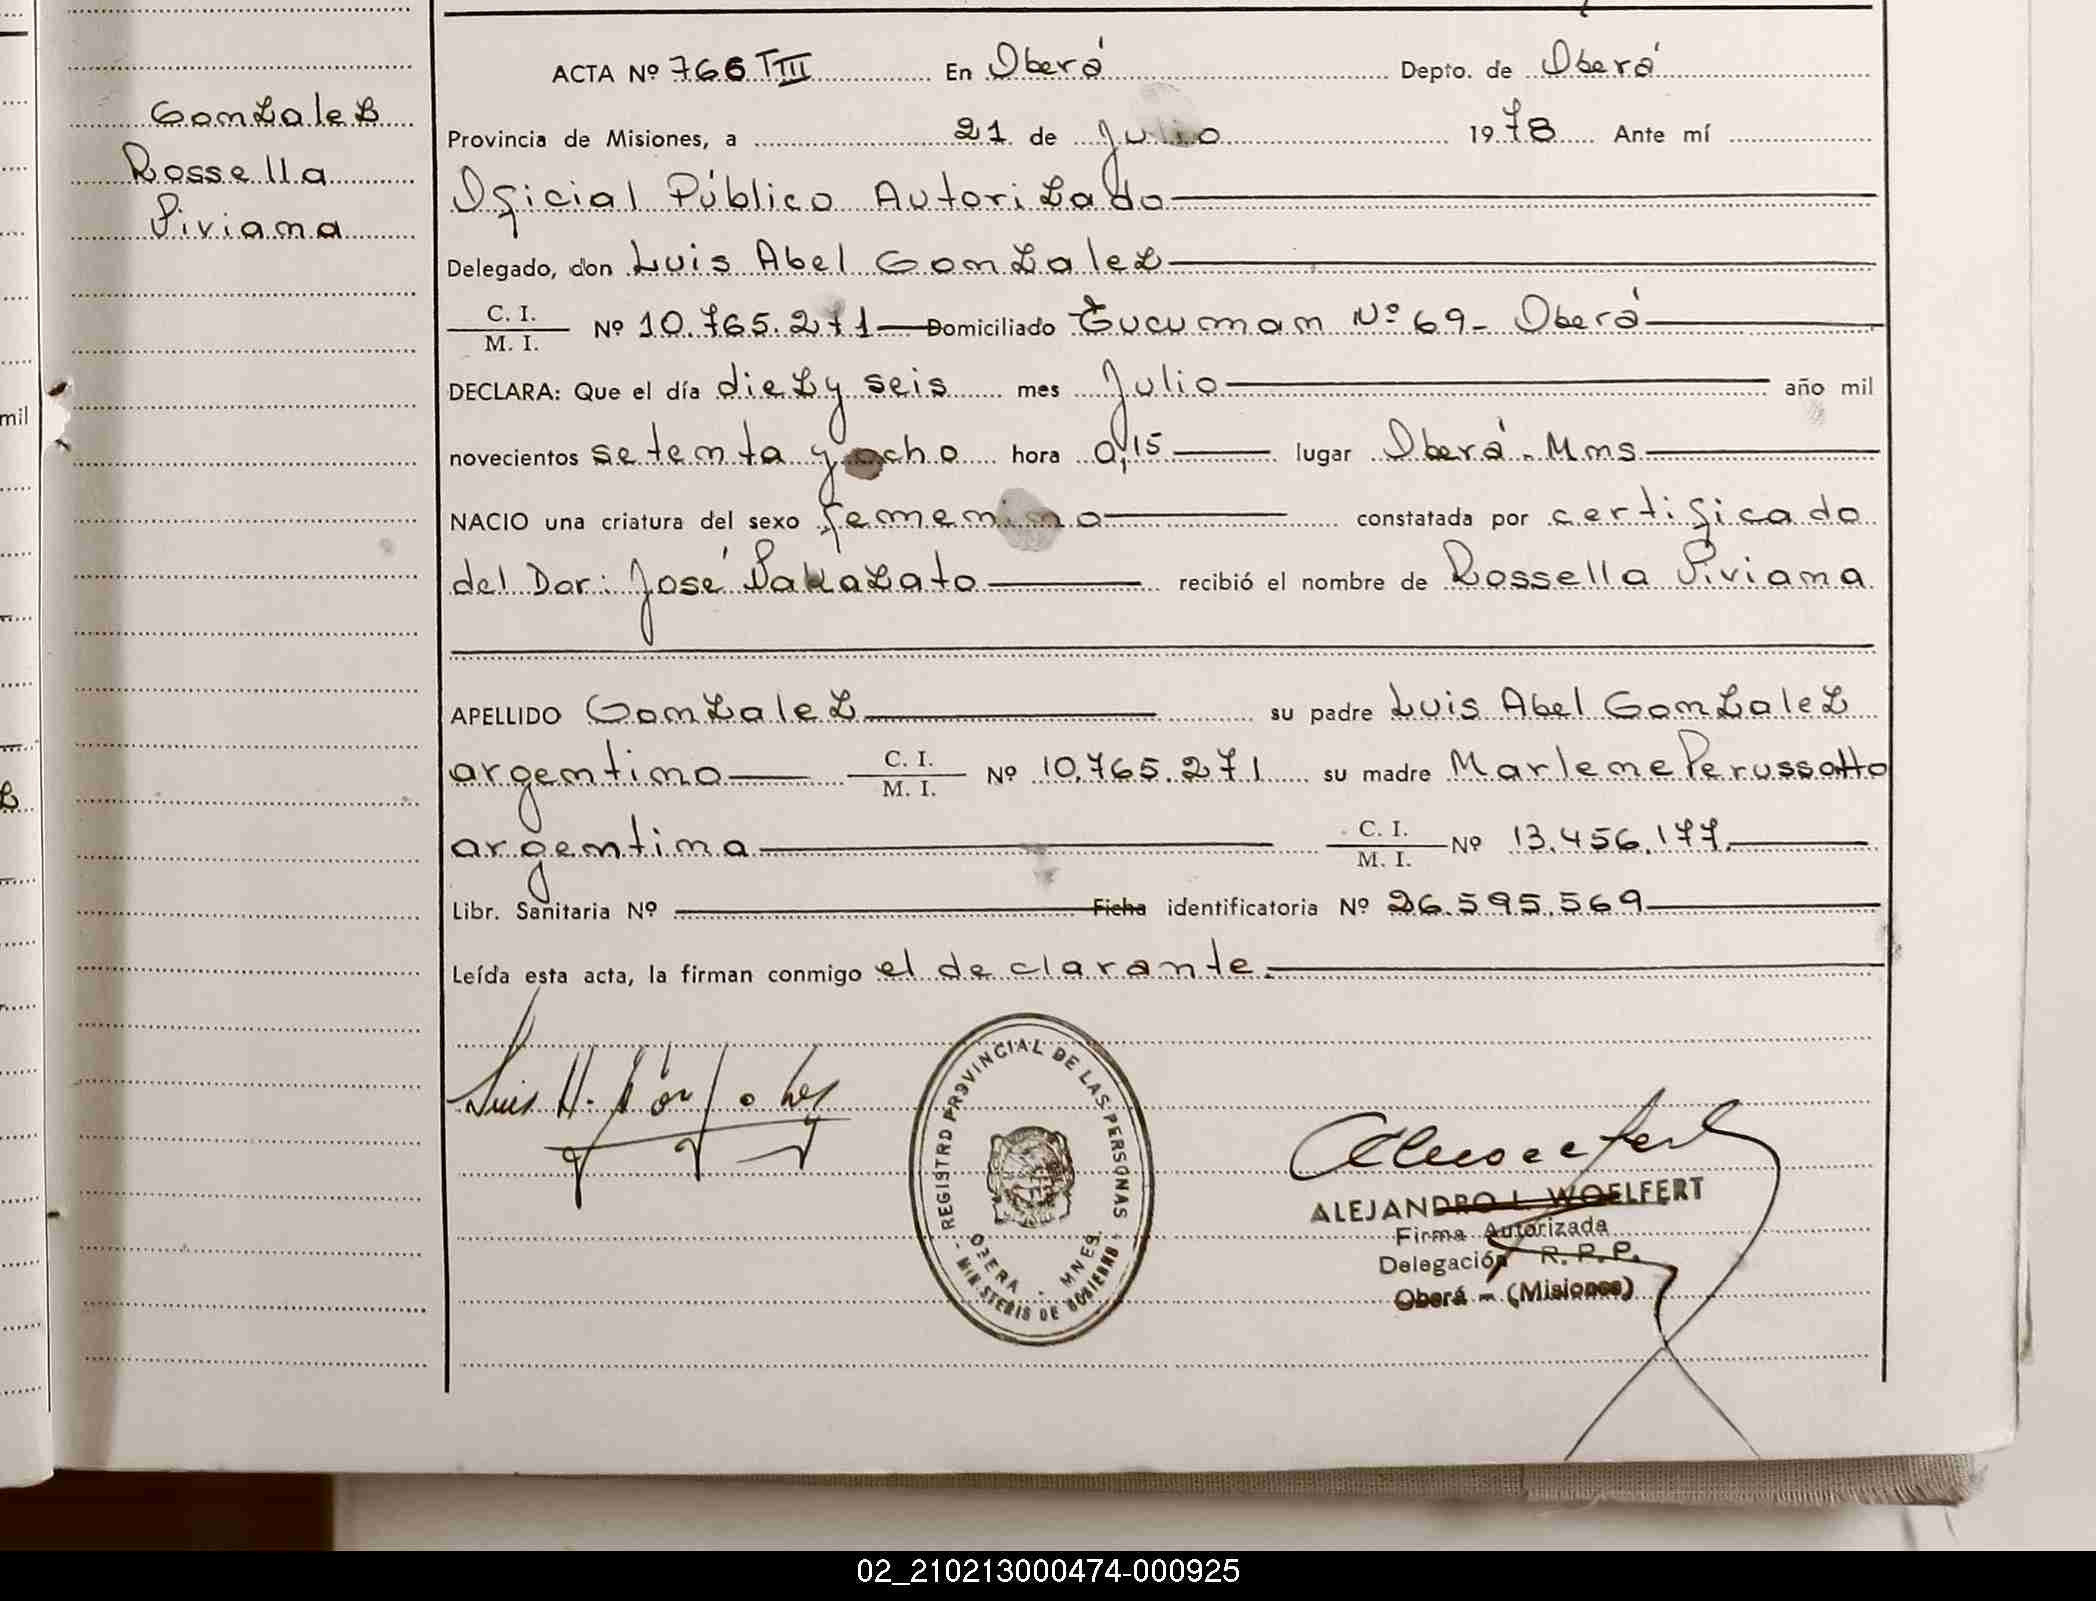 GonZaleZ
Rossella
Viviana
ACTA Nº 766 TIII En Oberá Depto. de Oberá
Provincia de Misiones, a 21 de Julio 1978 Ante mí
Oficial Público AutoriZado
Delegado, don Luis Abel GonZaleZ
C. I.
M. I. Nº 10.765.271 Domiciliado Tucuman Nº 69 - Oberá
DECLARA: Que el día dieZ y seis mes Julio año mil
novecientos setenta y ocho hora 0,15 lugar Oberá - Mnes
NACIO una criatura del sexo femenino constatada por certificado
del Dor: José recibió el nombre de Rossella Viviana
APELLIDO GonZaleZ su padre Luis Abel GonZaleZ
argentino C. I.
M. I. Nº 10.765.271 su madre Marlene Perussatto
argentina C. I.
M. I. Nº 13.456.177
Libr. Sanitaria Nº Ficha identificatoria Nº 26.595.569
Leída esta acta, la firman conmigo el declarante.
REGISTRO PROVINCIAL DE LAS PERSONAS
OBERA - MNES.
MINISTERIO DE GOBIERNO
ALEJANDRO L. WOELFERT
Firma Autorizada
Delegación R. P. P.
Oberá - (Misiones)
mil
02_210213000474-000925